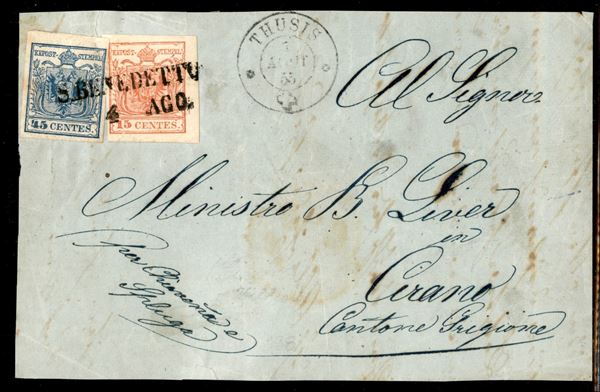 KKPOST-STEMPEL
KKPOST-STEMPEL
45 CENTES.
15 CENTES.
S. BENEDETTO
AGO.
THUSIS
55
Al Signor
Ministro B. Liver
in
Cirano
Cantone Grigione
per Chiavenna e
Spluga